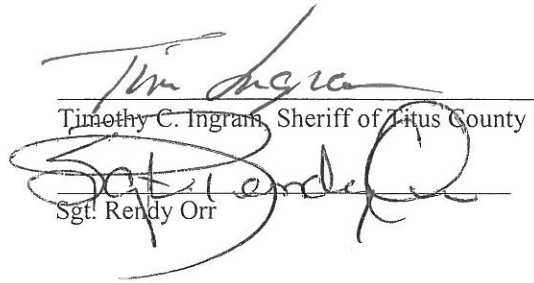 Tim Ingram
Timothy C. Ingram, Sheriff of Titus County
Sgt. Rendy Orr
Sgt. Rendy Orr